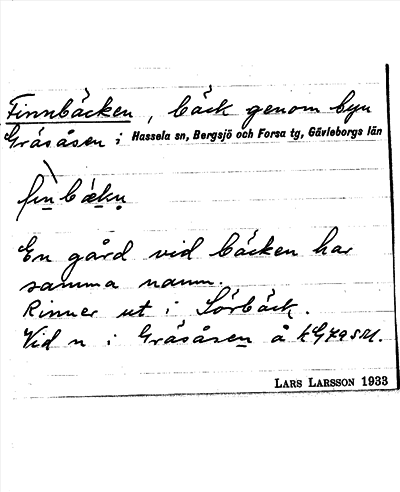 Finnbäcken, bäck genom byn
Gräsåsen i Hassela sn, Bergsjö och Forsa tg, Gävleborgs län
En gård vid bäcken har
samma namn.
Rinner ut i Lörbäck.
Vid n i Gräsåsen å
LARS LARSSON 1933